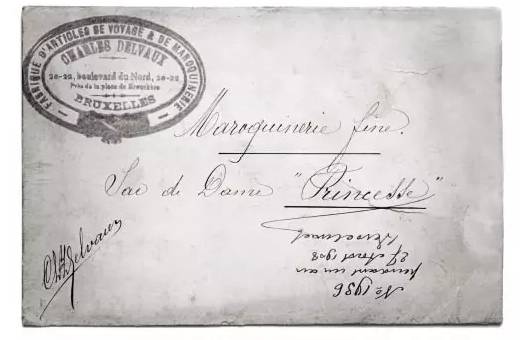 FABRIQUE D'ARTICLES DE VOYAGE & DE MAROQUINERIE
CHARLES DELVAUX
20-22, boulevard du Nord, 20-22
Près de la place de Brouckère
BRUXELLES
Maroquinerie fine.
Sac de Dame "Princesse"
Ch Delvaux
No
pendant un an
27 Août 1908